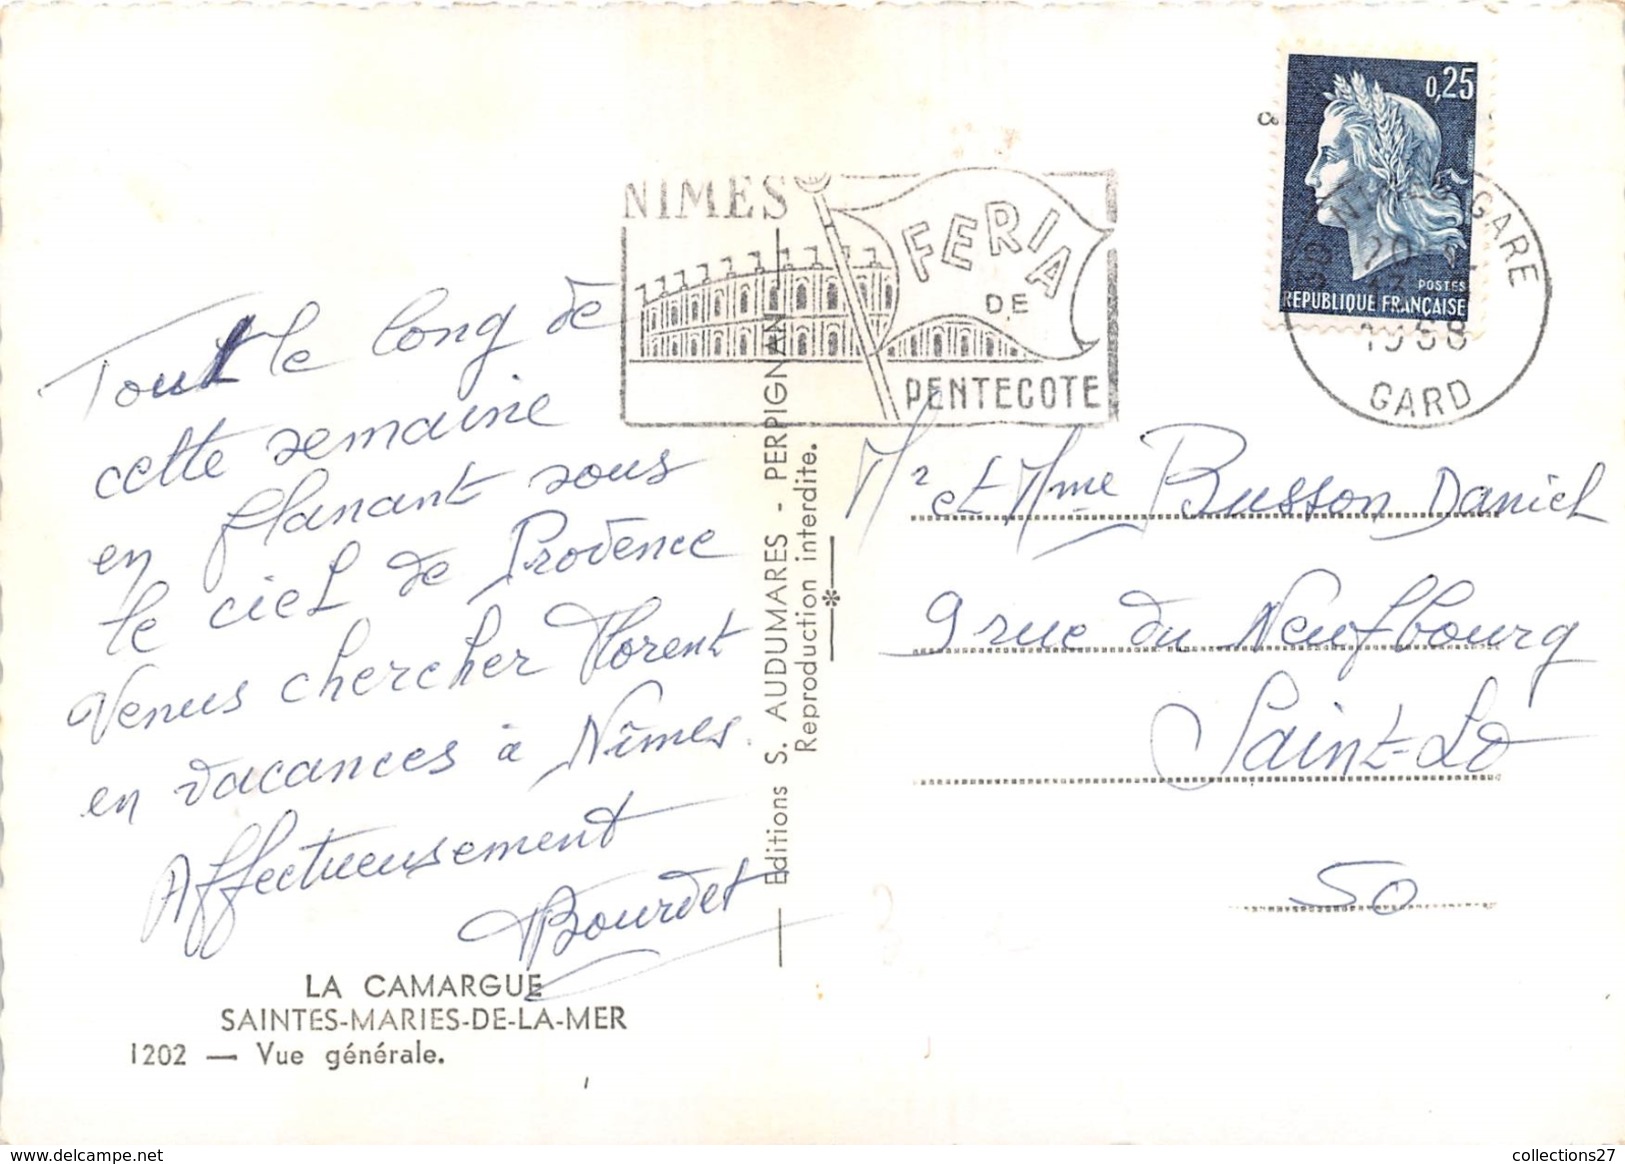 Tout le long de
cette semaine
en flanant sous
le ciel de Provence
Venus chercher Florent
en vacances à Nîmes.
Affectueusement
Bourdet
LA CAMARGUE
SAINTES-MARIES-DE-LA-MER
1202 — Vue générale.
Editions S. AUDUMARES - PERPIGNAN
Reproduction interdite.
NIMES
FERIA
DE
PENTECOTE
0,25
POSTES
REPUBLIQUE FRANÇAISE
GARE
1968
GARD
Mr et Mme Busson Daniel
9 rue du Neufbourg
Saint-Lo
50
collections27